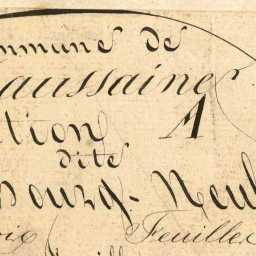 ommune de
aussaine
ction A
dite
Bourg-Neu
Feuille